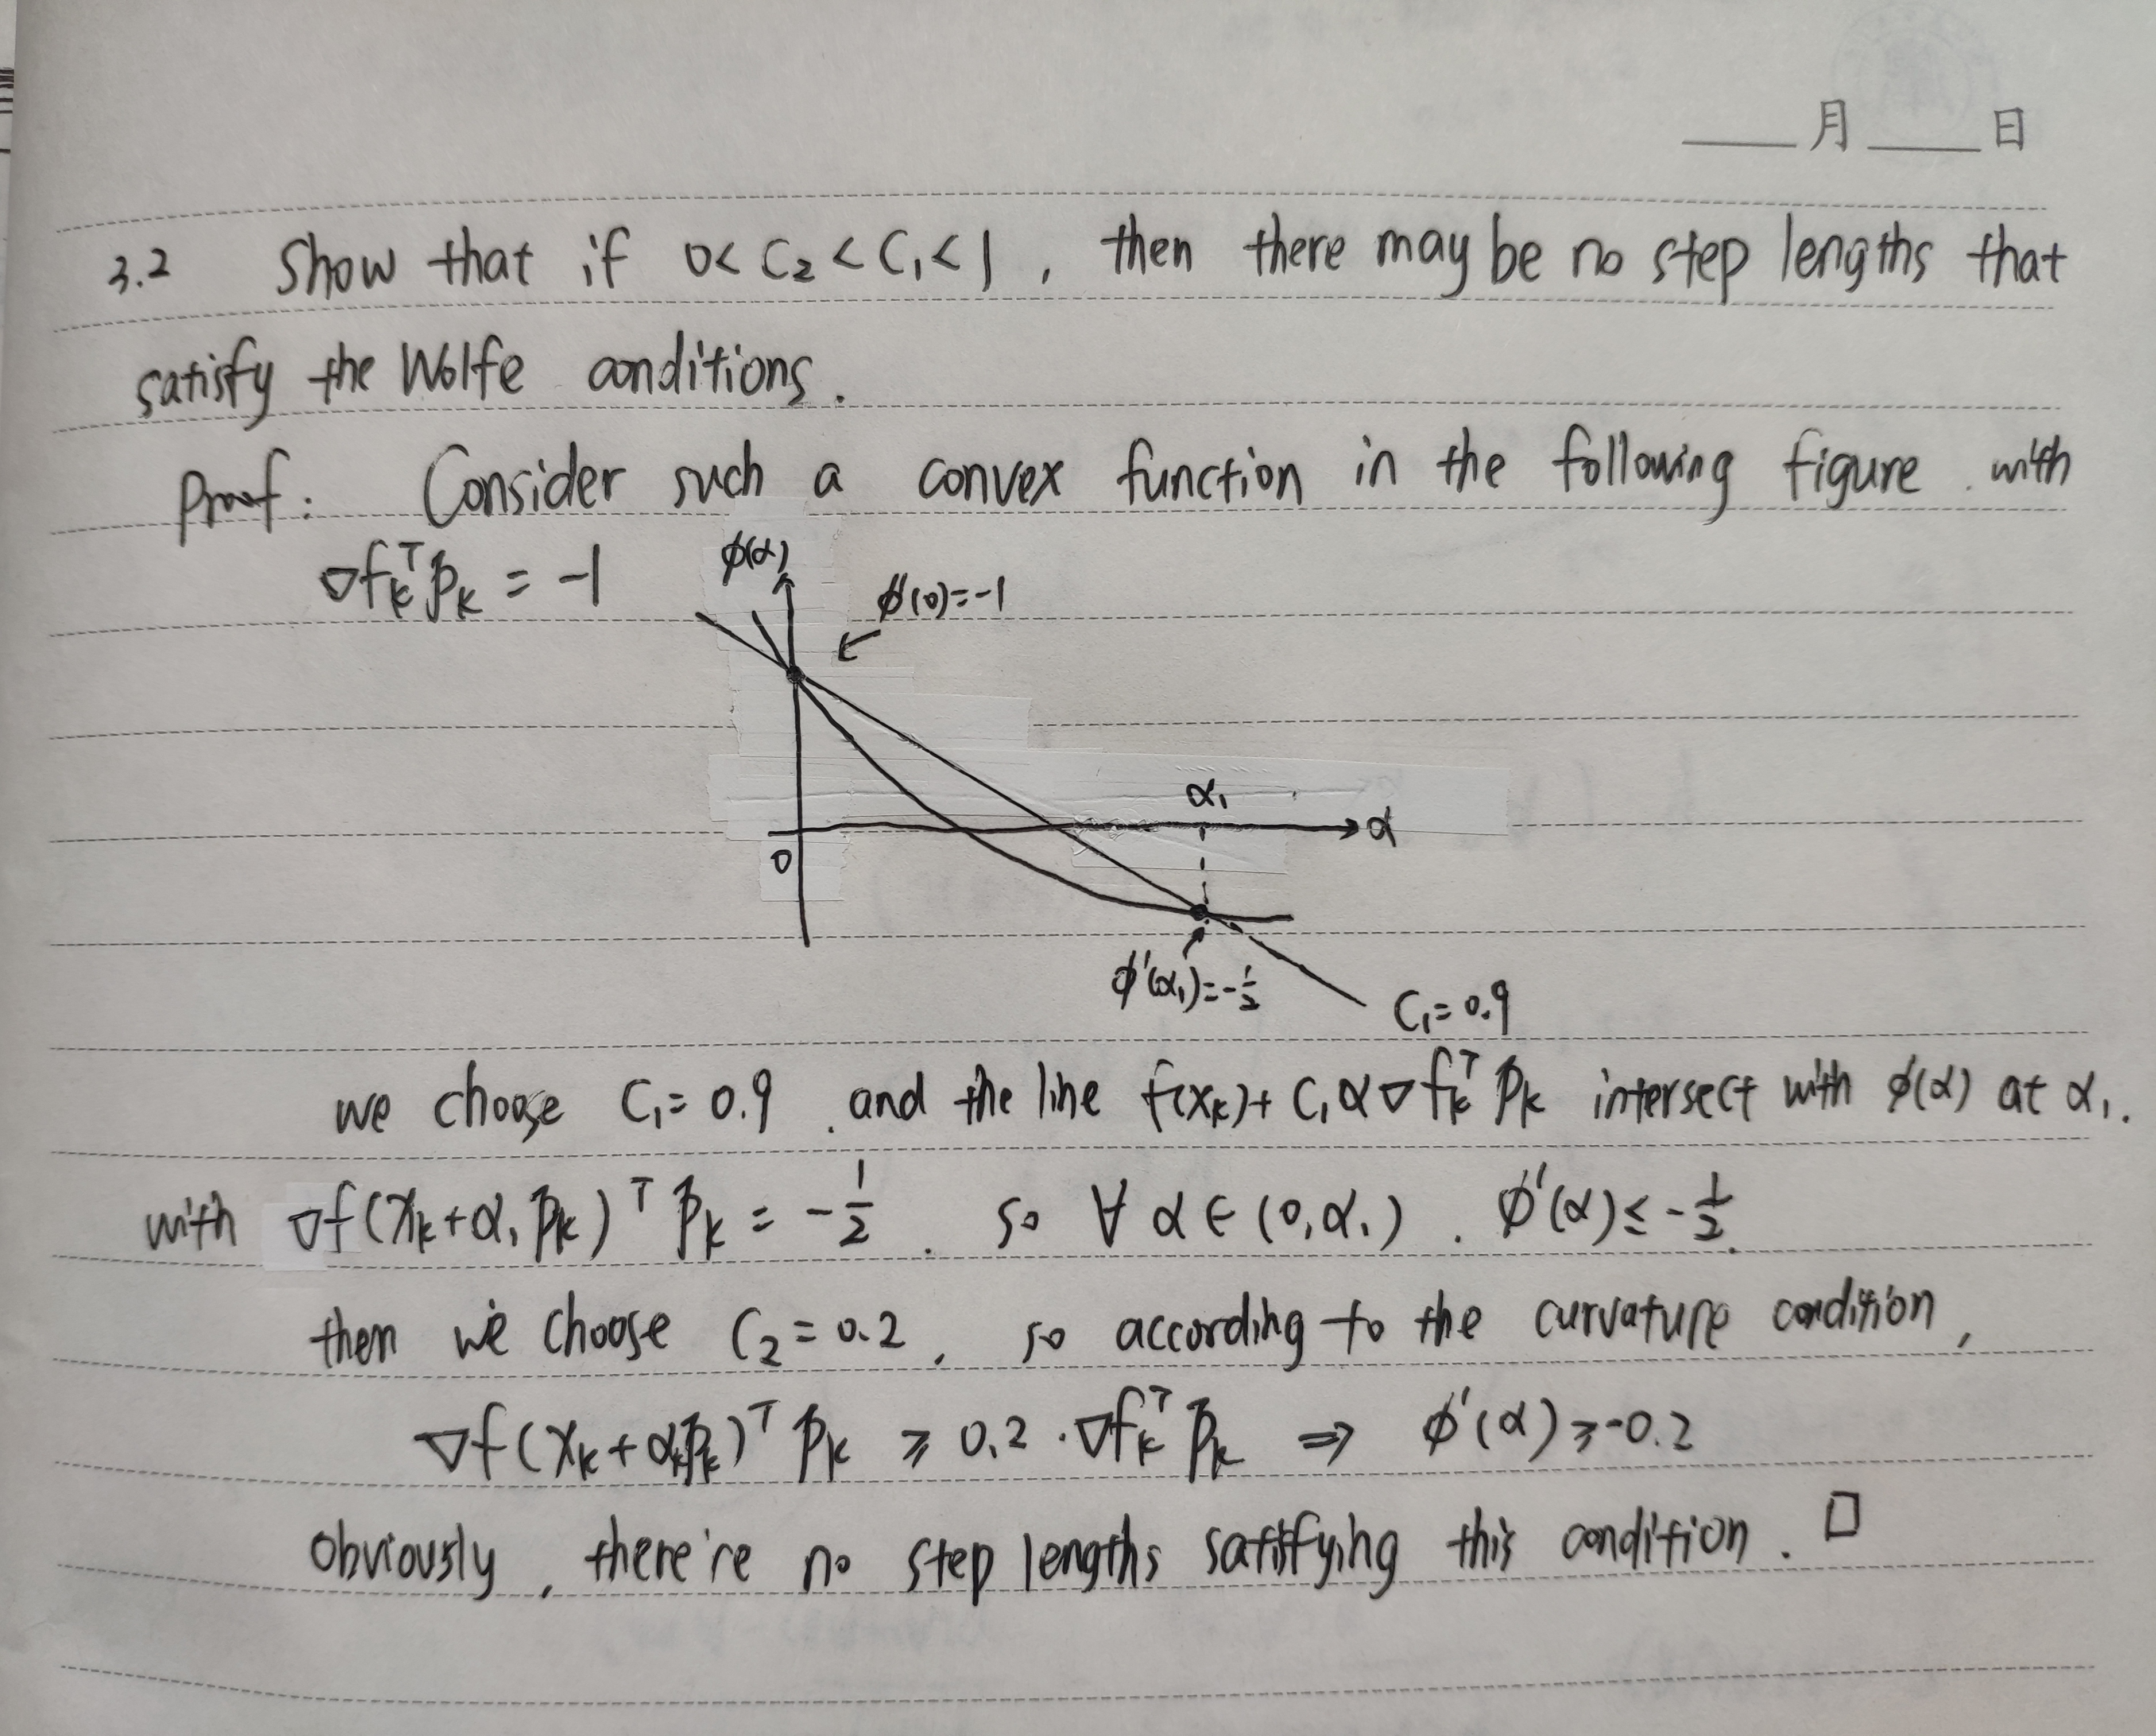 月 日
3.2 Show that if 0< C₂ < C₁ < 1 , then there may be no step lengths that
satisfy the Wolfe conditions.
Proof: Consider such a convex function in the following figure. with
∇fₖᵀPₖ = -1
ϕ(α)
ϕ'(0)=-1
α₁
α
0
ϕ'(α₁)=-½
C₁=0.9
we choose C₁= 0.9 . and the line f(xₖ)+ C₁α∇fₖᵀPₖ intersect with ϕ(α) at α₁.
with ∇f(xₖ+α₁Pₖ)ᵀ Pₖ = -½ . so ∀ α ∈ (0,α₁) . ϕ'(α) ≤ -½.
then we choose C₂=0.2 , so according to the curvature condition,
∇f(xₖ+αₖPₖ)ᵀ Pₖ ≥ 0.2 ·∇fₖᵀPₖ ⇒ ϕ'(α) ≥ -0.2
obviously, there're no step lengths satisfying this condition. □